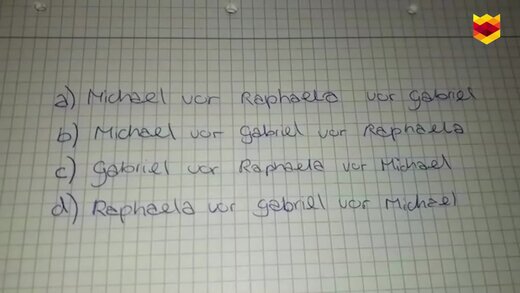 a) Michael vor Raphaela vor Gabriel
b) Michael vor Gabriel vor Raphaela
c) Gabriel vor Raphaela vor Michael
d) Raphaela vor Gabriel vor Michael